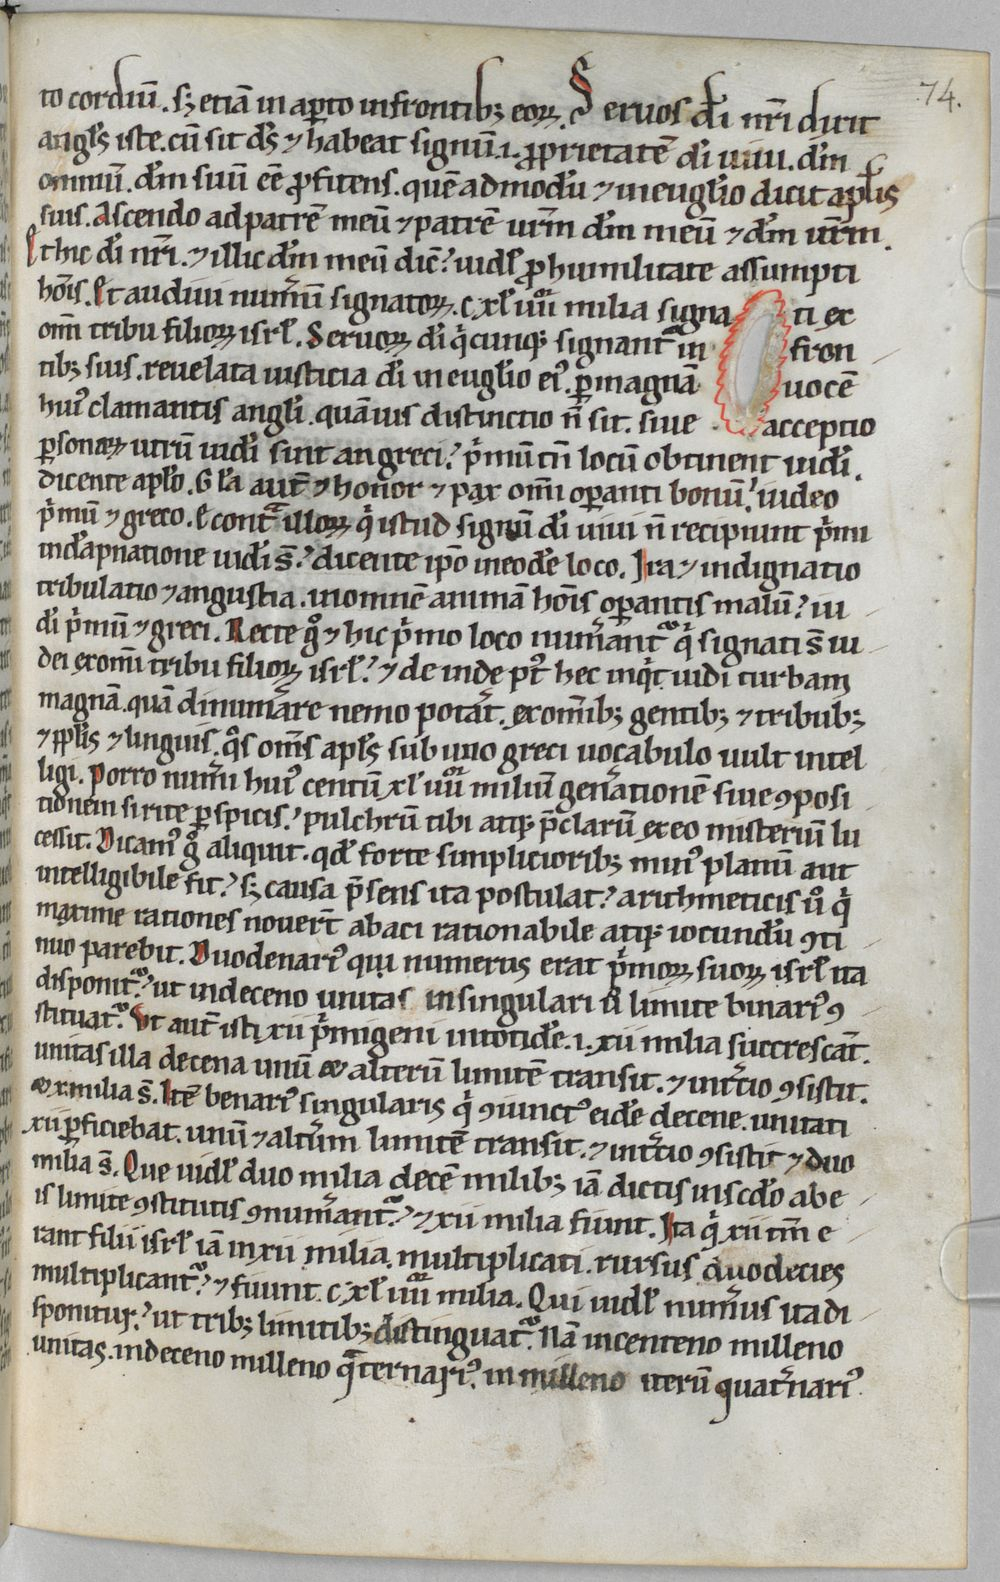 74.
to cordiū. sꝫ etiā in aꝑto in frontibꝫ eoꝝ. Seruos dī nr̄i dicit
angl̄s iste. cū sit ds̄ ⁊ habeat signū .i. ꝓprietatē dī uiui. dm̄
omniū. dm̄ suū eē ꝓfitens. quē admodū ⁊ in eugl̄io dicit apl̄is
suis. Ascendo ad patrē meū ⁊ patrē ur̄m dm̄ meū ⁊ dm̄ ur̄m.
Et hic dī nr̄i. ⁊ illic dm̄ meū dic̄. uidel̄ ꝓ humilitate assumpti
hōis. Et audiui num̄um signatoꝝ. c.xl iiii milia signati ex
om̄i tribu filioꝝ isrl̄. Seruoꝝ dī qͥcunqꝫ signant᷑ in fron
tibꝫ suis. reuelata iusticia dī in eugl̄io eiꝰ. ꝑ magnā uocē
huiꝰ clamantis angl̄i. quāuis distinctio n̄ sit. siue acceptio
ꝑsonaꝝ utrū iudī sint an greci. pͥmū tn̄ locū obtinent iudī.
dicente aplo̅. Gl̄a aut̄ ⁊ honor ⁊ pax om̄i oꝑanti bonū. iudeo
pͥmū ⁊ greco. E contͣ illoꝝ qͥ istud signū dī uiui n̄ recipiunt pͥmi
in dāpnatione iudī s̄. dicente ip̄o in eodē loco. Ira ⁊ indignatio
tribulatio ⁊ angustia. in omnē animā hōis oꝑantis malū. iu
dī pͥmū ⁊ greci. Recte gͦ ⁊ hic pͥmo loco num̄ant᷑ qͥ signati s̄ iu
dei ex om̄i tribu filioꝝ isrl̄. ⁊ de inde pt̄ hec inqͥt uidi turbam
magnā. quā dinum̄are nemo potat̄. ex om̄ibꝫ gentibꝫ ⁊ tribubꝫ
⁊ ppl̄is ⁊ linguis. qͦs om̄s apl̄s sub uno greci uocabulo uult intel
ligi. Porro num̄i huiꝰ centū xl iiii miliū gen̄ationē siue ꝯposi
tionem si rite ꝑspicis. pulchrū tibi atqꝫ p̄clarū ex eo misteriū lu
cessit. Dicamꝰ gͦ aliquit. qd̄ forte simplicioribꝫ minꝰ planū aut
intelligibile fit. sꝫ causa p̄sens ita postulat. arithmeticis ū qͥ
maxime rationes nouer̄t abaci rationabile atqꝫ iocundū ꝯti
nuo parebit. Duodenariꝰ qui numerus erat pͥmoꝝ suoꝝ isrl̄ ita
disponit᷑. ut in deceno unitas in singulari ū limite binariꝰ ꝯ
stituat᷑. Vt aut̄ isti xii pͥmigeni in totidē .i. xii milia succrescāt.
unitas illa decena unū & alterū limitē transit. ⁊ in tr̄cio ꝯsistit.
& x milia s̄. Itē benariꝰ singularis qͥ ꝯiunctꝰ eidē decene unitati
xii ꝑficiebat. unū ⁊ alt̄um limitē transit. ⁊ in tr̄cio ꝯsistit ⁊ duo
milia s̄. Que uidel̄ duo milia decē milibꝫ iā dictis in scdo̅ ab e
is limite ꝯstitutis ꝯnum̄ant᷑. ⁊ xii milia fiunt. Ita qͥ xii tm̄ e
rant filii isrl̄ iā in xii milia multiplicati. rursus duodecies
multiplicant᷑. ⁊ fiunt. c.xl iiii milia. Qui uidel̄ num̄us ita di
sponitur. ut tribꝫ limitibꝫ distinguat᷑. Nā in centeno milleno
unitas. in deceno milleno qͣternariꝰ. in milleno iterū quat̄nariꝰ.